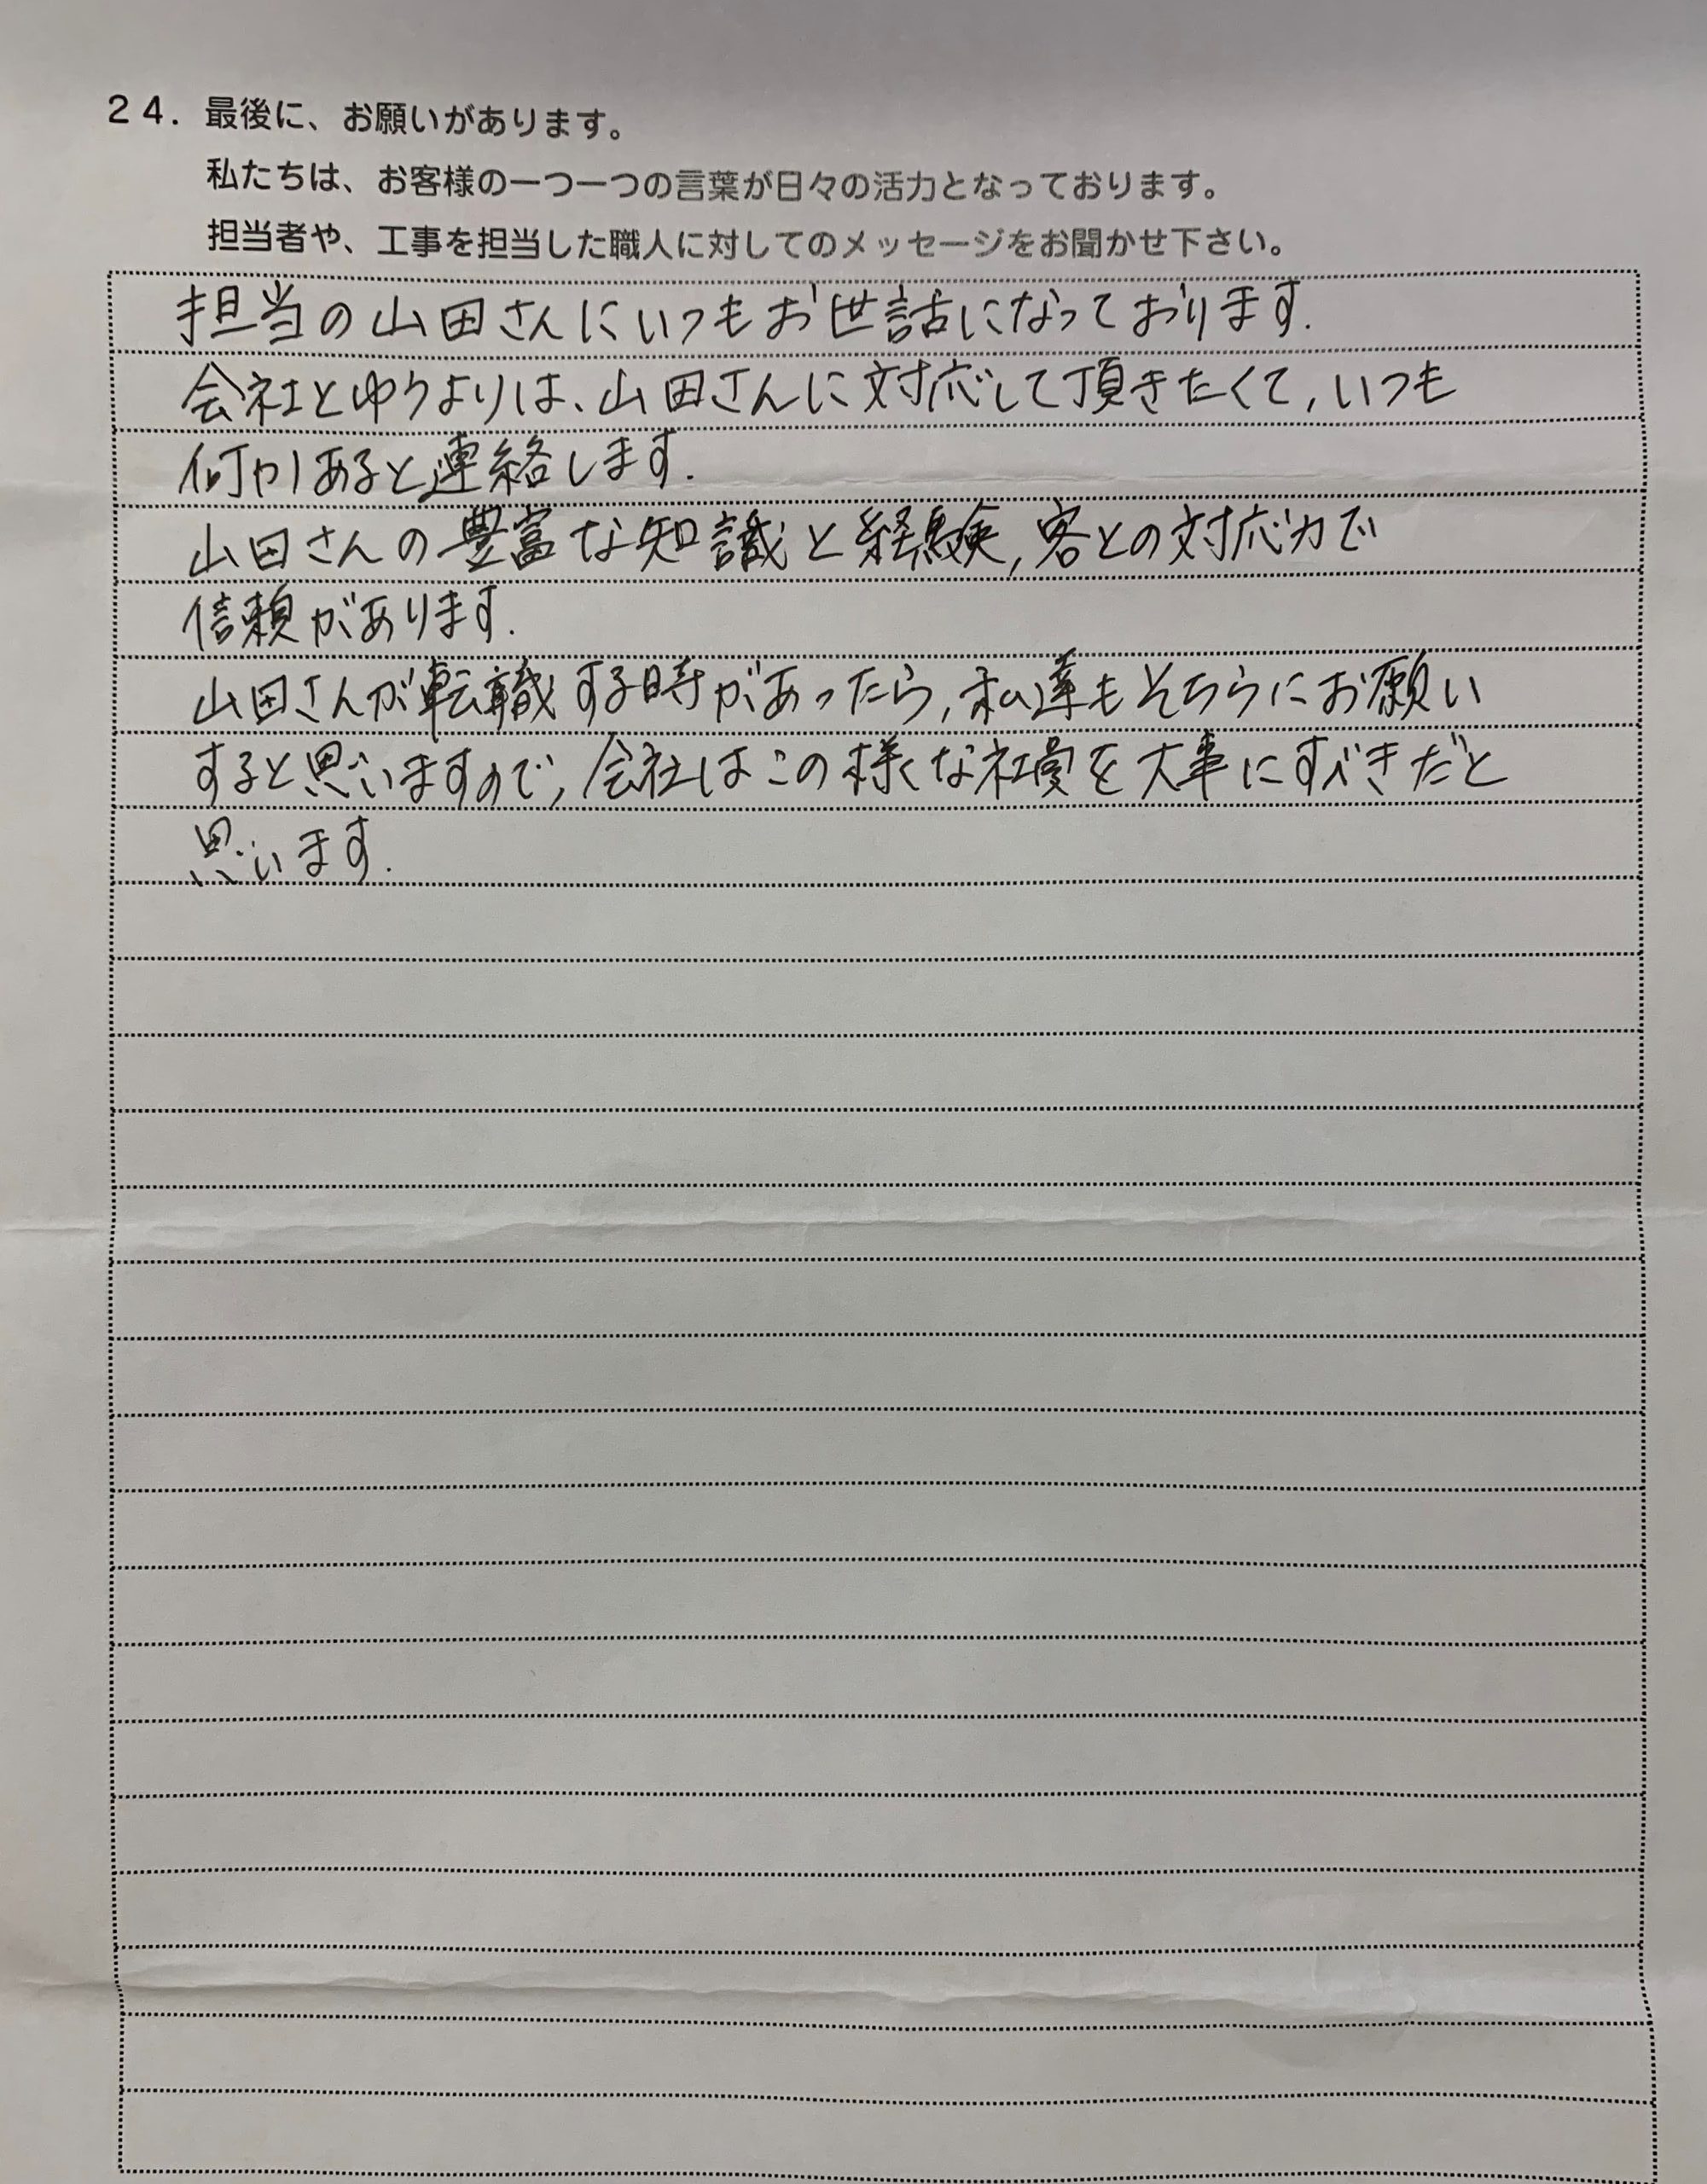 24. 最後に、お願いがあります。
私たちは、お客様の一つ一つの言葉が日々の活力となっております。
担当者や、工事を担当した職人に対してのメッセージをお聞かせ下さい。
担当の山田さんにいつもお世話になっております.
会社とゆうよりは、山田さんに対応して頂きたくて,いつも
何かあると連絡します.
山田さんの豊富な知識と経験,客との対応力で
信頼があります.
山田さんが転職する時があったら,私達もそちらにお願い
すると思いますので,会社はこの様な社員を大事にすべきだと
思います.